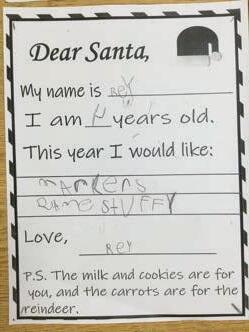 Dear Santa,
My name is Rex
I am 4 years old.
This year I would like:
markers
STUFFY
Love,
Rex
P.S. The milk and cookies are for
you, and the carrots are for the
reindeer.